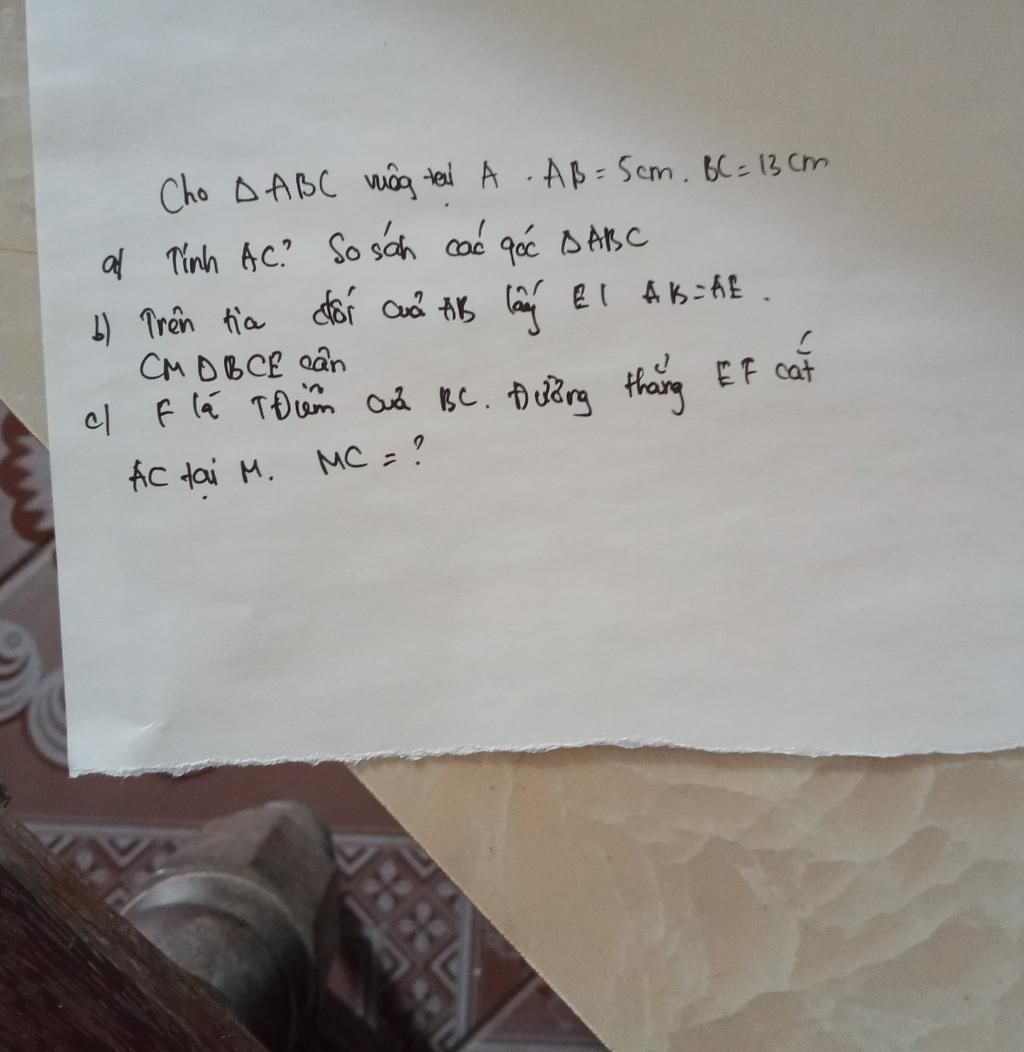 Cho ΔABC vuông tại A . AB = 5cm. BC = 13cm
a) Tính AC? So sánh các góc ΔABC
b) Trên tia đối của AB lấy E | AB=AE .
CM ΔBCE cân
c) F là TĐiểm của BC. Đường thẳng EF cắt
AC tại M. MC = ?